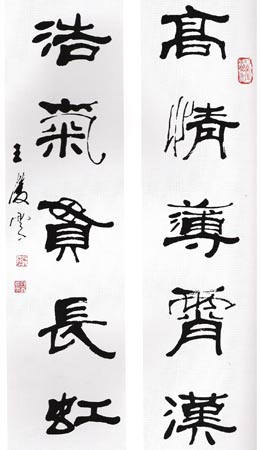 高情薄霄漢
浩氣貫長虹
王